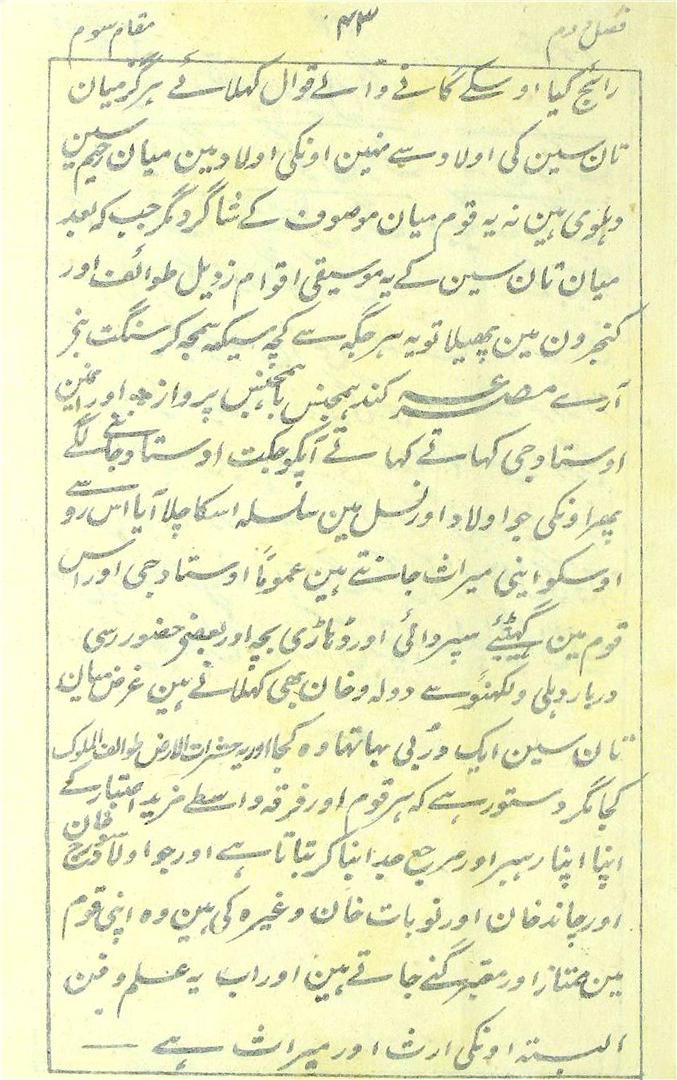 فصل دوم ۴۳ مقام سوم
رائج کیا اوسکے گانے والے قوال کہلائے ہرگز میان
تان سین کی اولاد سے نہین اونکی اولاد ہین میان رحیم سین
دہلوی ہین نہ یہ قوم میان موصوف کے شاگرد مگر جب کہ بعد
میان تان سین کے یہ موسیقی اقوام رذیل طوائف اور
کنجرون مین پھیلا تو یہ ہر جگہ سے کچھ سیکھ سمجھ کر سنگت
آرے مصرعہ کند ہمجنس باہمجنس پرواز اور
اوستاد جی کہاتے کہاتے آپکو جگت اوستاد جاننے لگے
پھر اونکی جو اولاد اور نسل مین سلسلہ اسکا چلا آیا اس رو سے
اوسکو اپنی میراث جانتے ہین عموماً اوستاد جی اور اس
قوم مین سپردائی اور ڈہاڑی بچہ اور بعض حضور رسی
دربار دہلی و لکھنؤ سے دولہ و خان بھی کہلاتے ہین غرض میان
تان سین ایک دُر بے بہا تھا وہ کجا اور یہ حشرات الارض طوائف الملوک
کجا مگر دستور ہے کہ ہر قوم اور فرقہ واسطے مزید اعتبار کے
اپنا اپنا رہبر اور مرجع جدا بنا کر بتاتا ہے اور جو اولاد سورج خان
اور چاند خان اور نوبات خان وغیرہ کی ہین وہ اپنی قوم
مین ممتاز اور معتبر گنے جاتے ہین اور اب یہ علم و فن
البتہ اونکی ارث اور میراث ہے —